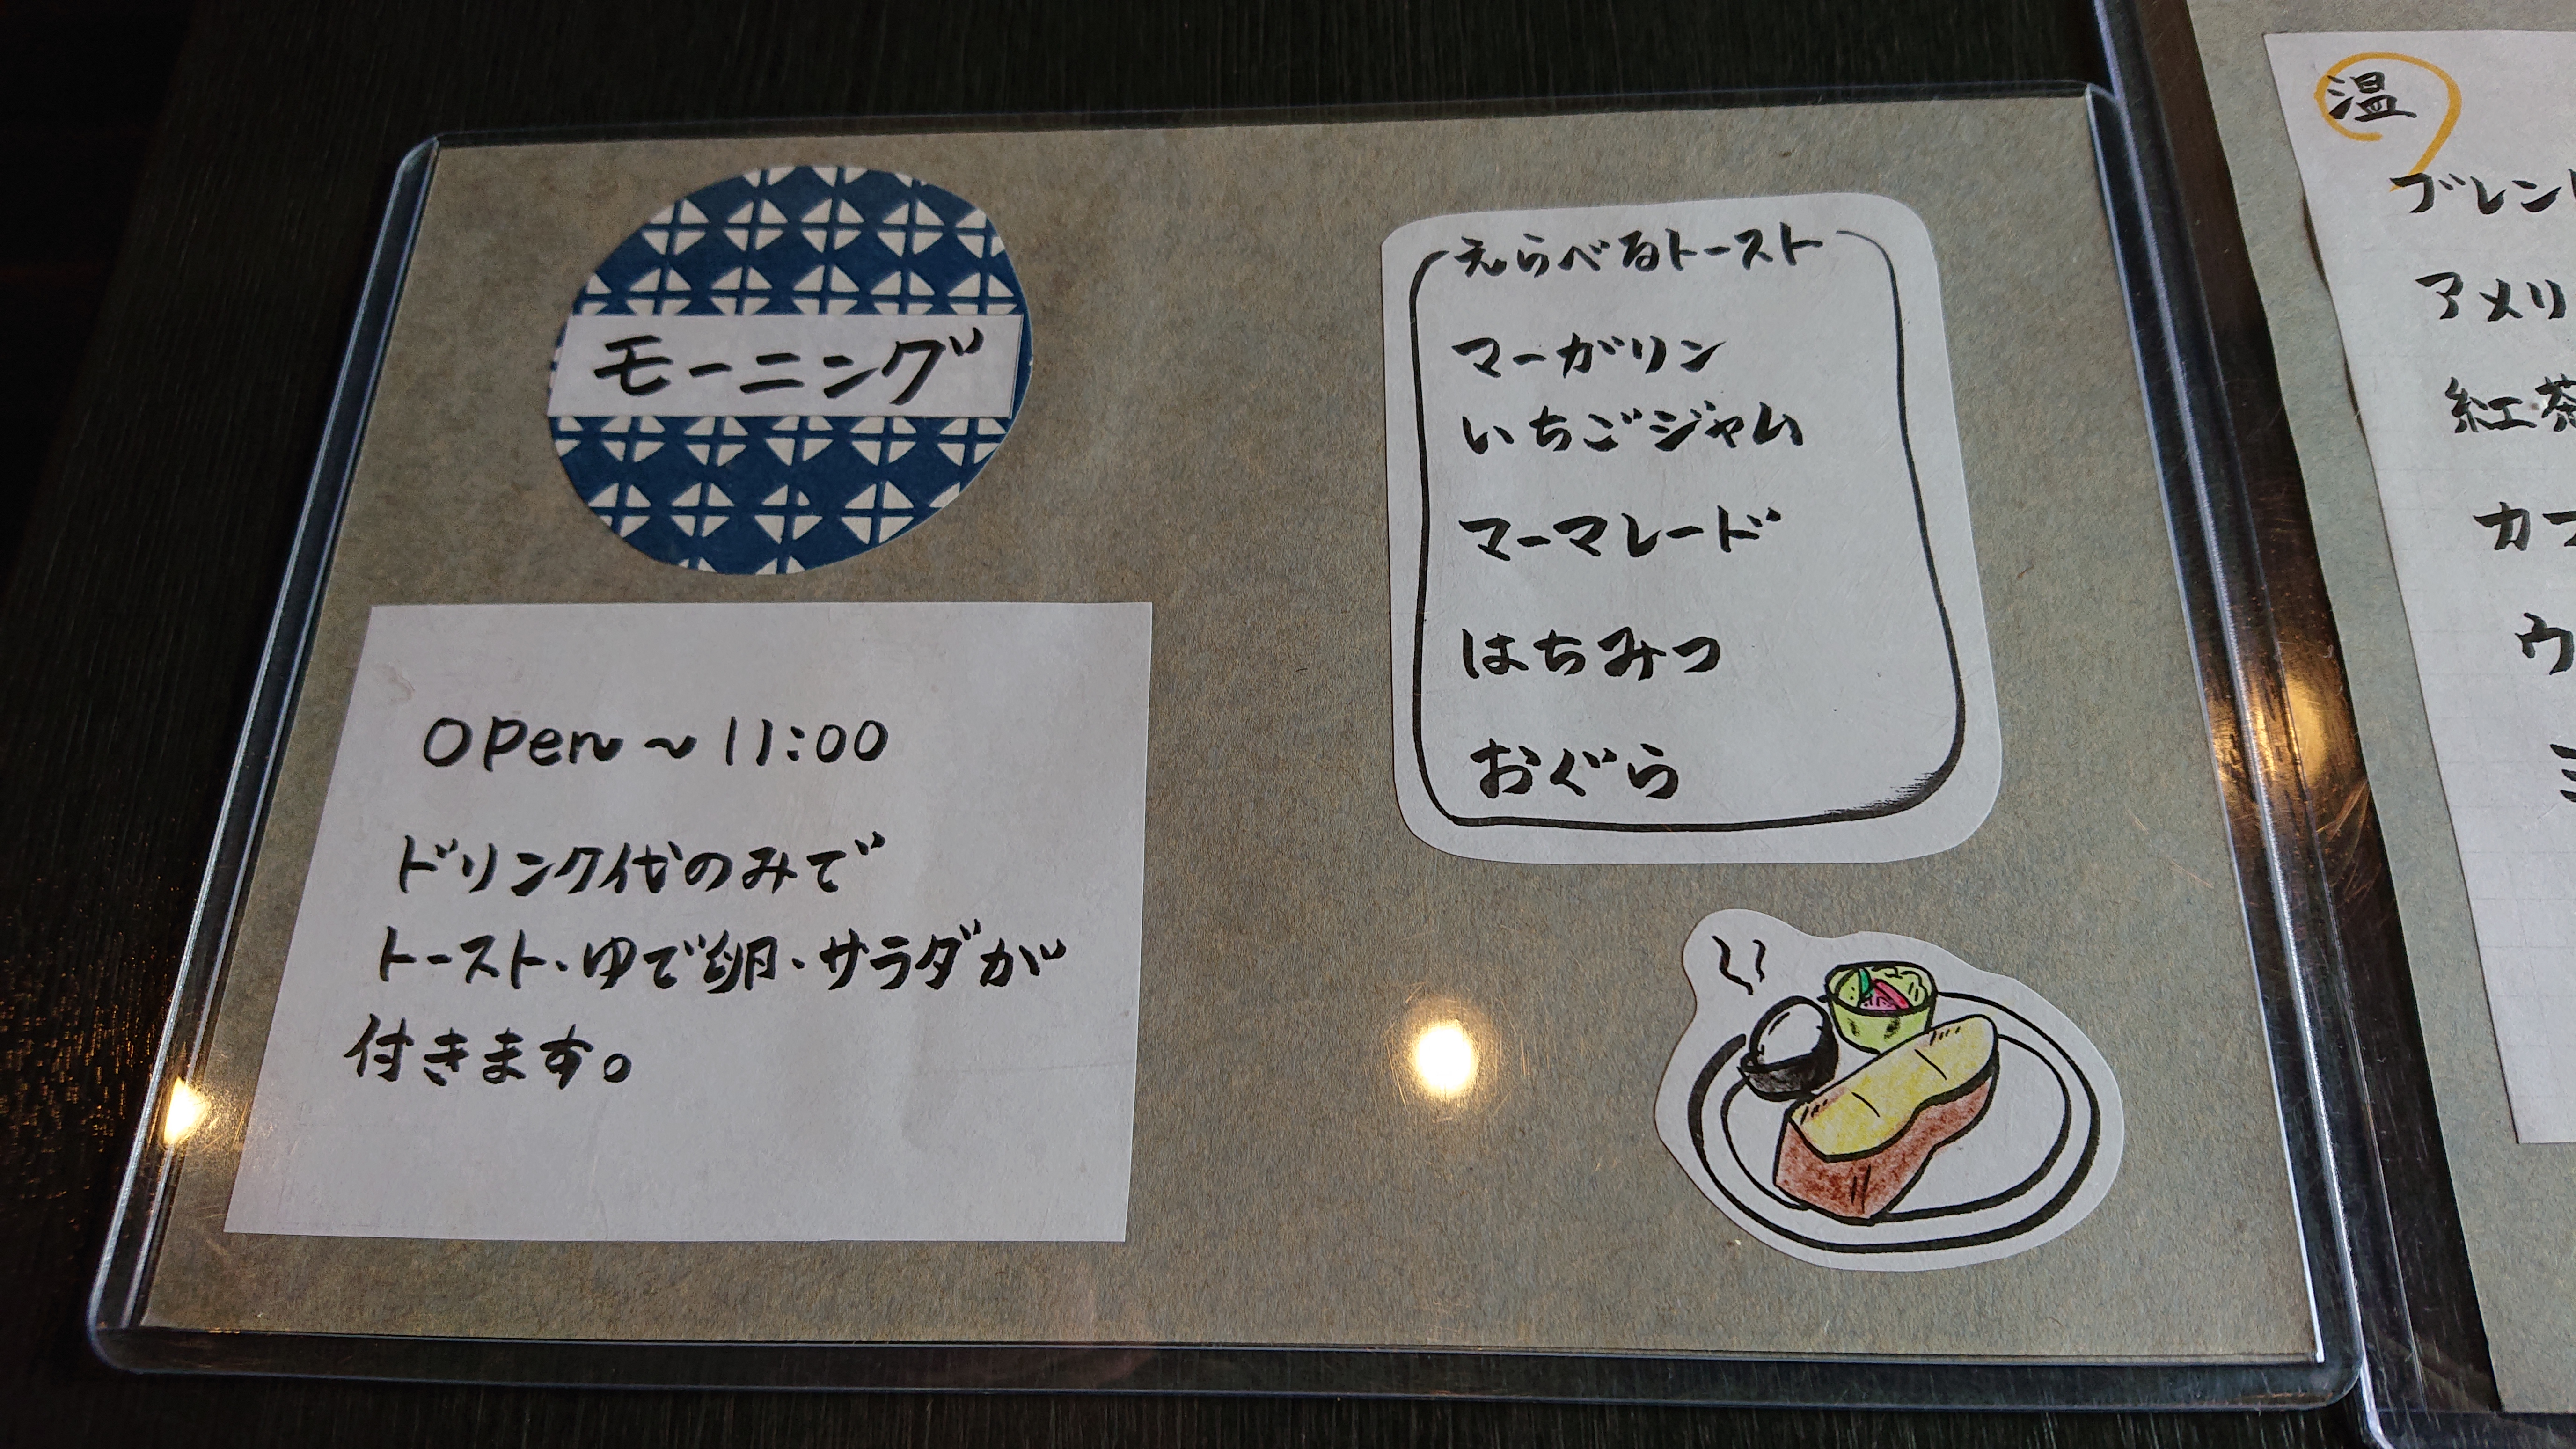 モーニング
open～11:00
ドリンク代のみで
トースト・ゆで卵・サラダが
付きます。
えらべるトースト
マーガリン
いちごジャム
マーマレード
はちみつ
おぐら
温
ブレン
アメリ
紅茶
カフ
ウ